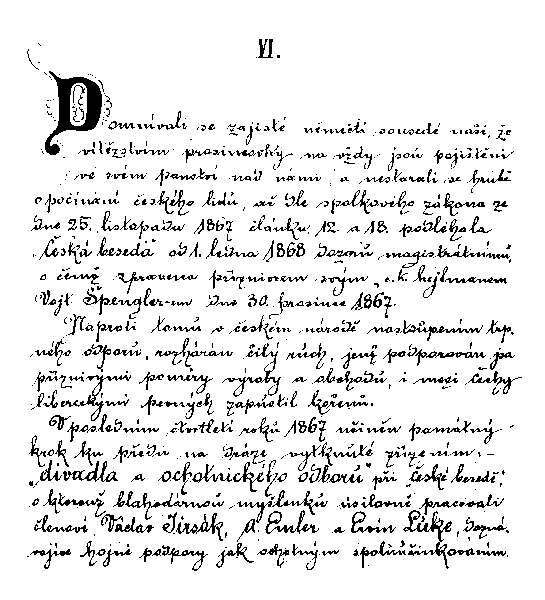 VI.
Domnívali se zajisté němečtí sousedé naši, že
vítězstvím prosincovky na vždy jsou pojištěni
ve svém panství nad námi, a nestarali se hrubě
o počínání českého lidu, ač dle spolkového zákona ze
dne 25. listopadu 1867 článku, 12. a 18. podléhala
"Česká beseda" od 1. ledna 1868 dozoru magistrátnímu,
o čemž zpravena příznivcem svým "c. k. hejtmanem
Vojt. Špengler-em dne 30. prosince 1867.
Naproti tomu v českém národě nastoupením trp-
ného odporu, rozhárán čilý ruch, jenž podporován pa
příznivými poměry výroby a obchodu, i mezi Čechy
libereckými pevných zapustil kořenů.
V posledním čtvrtletí roku 1867 učiněn památný
krok ku předu na dráze vytknuté zřízením: -
"divadla a ochotnického odboru" při České besedě,
o kterouž blahodárnou myšlenku úsilovně pracovali
členové Václav Jirsák, A. Emler a Ervín Lüke, dozná-
vajíce hojné podpory jak ochotným spoluúčinkováním.